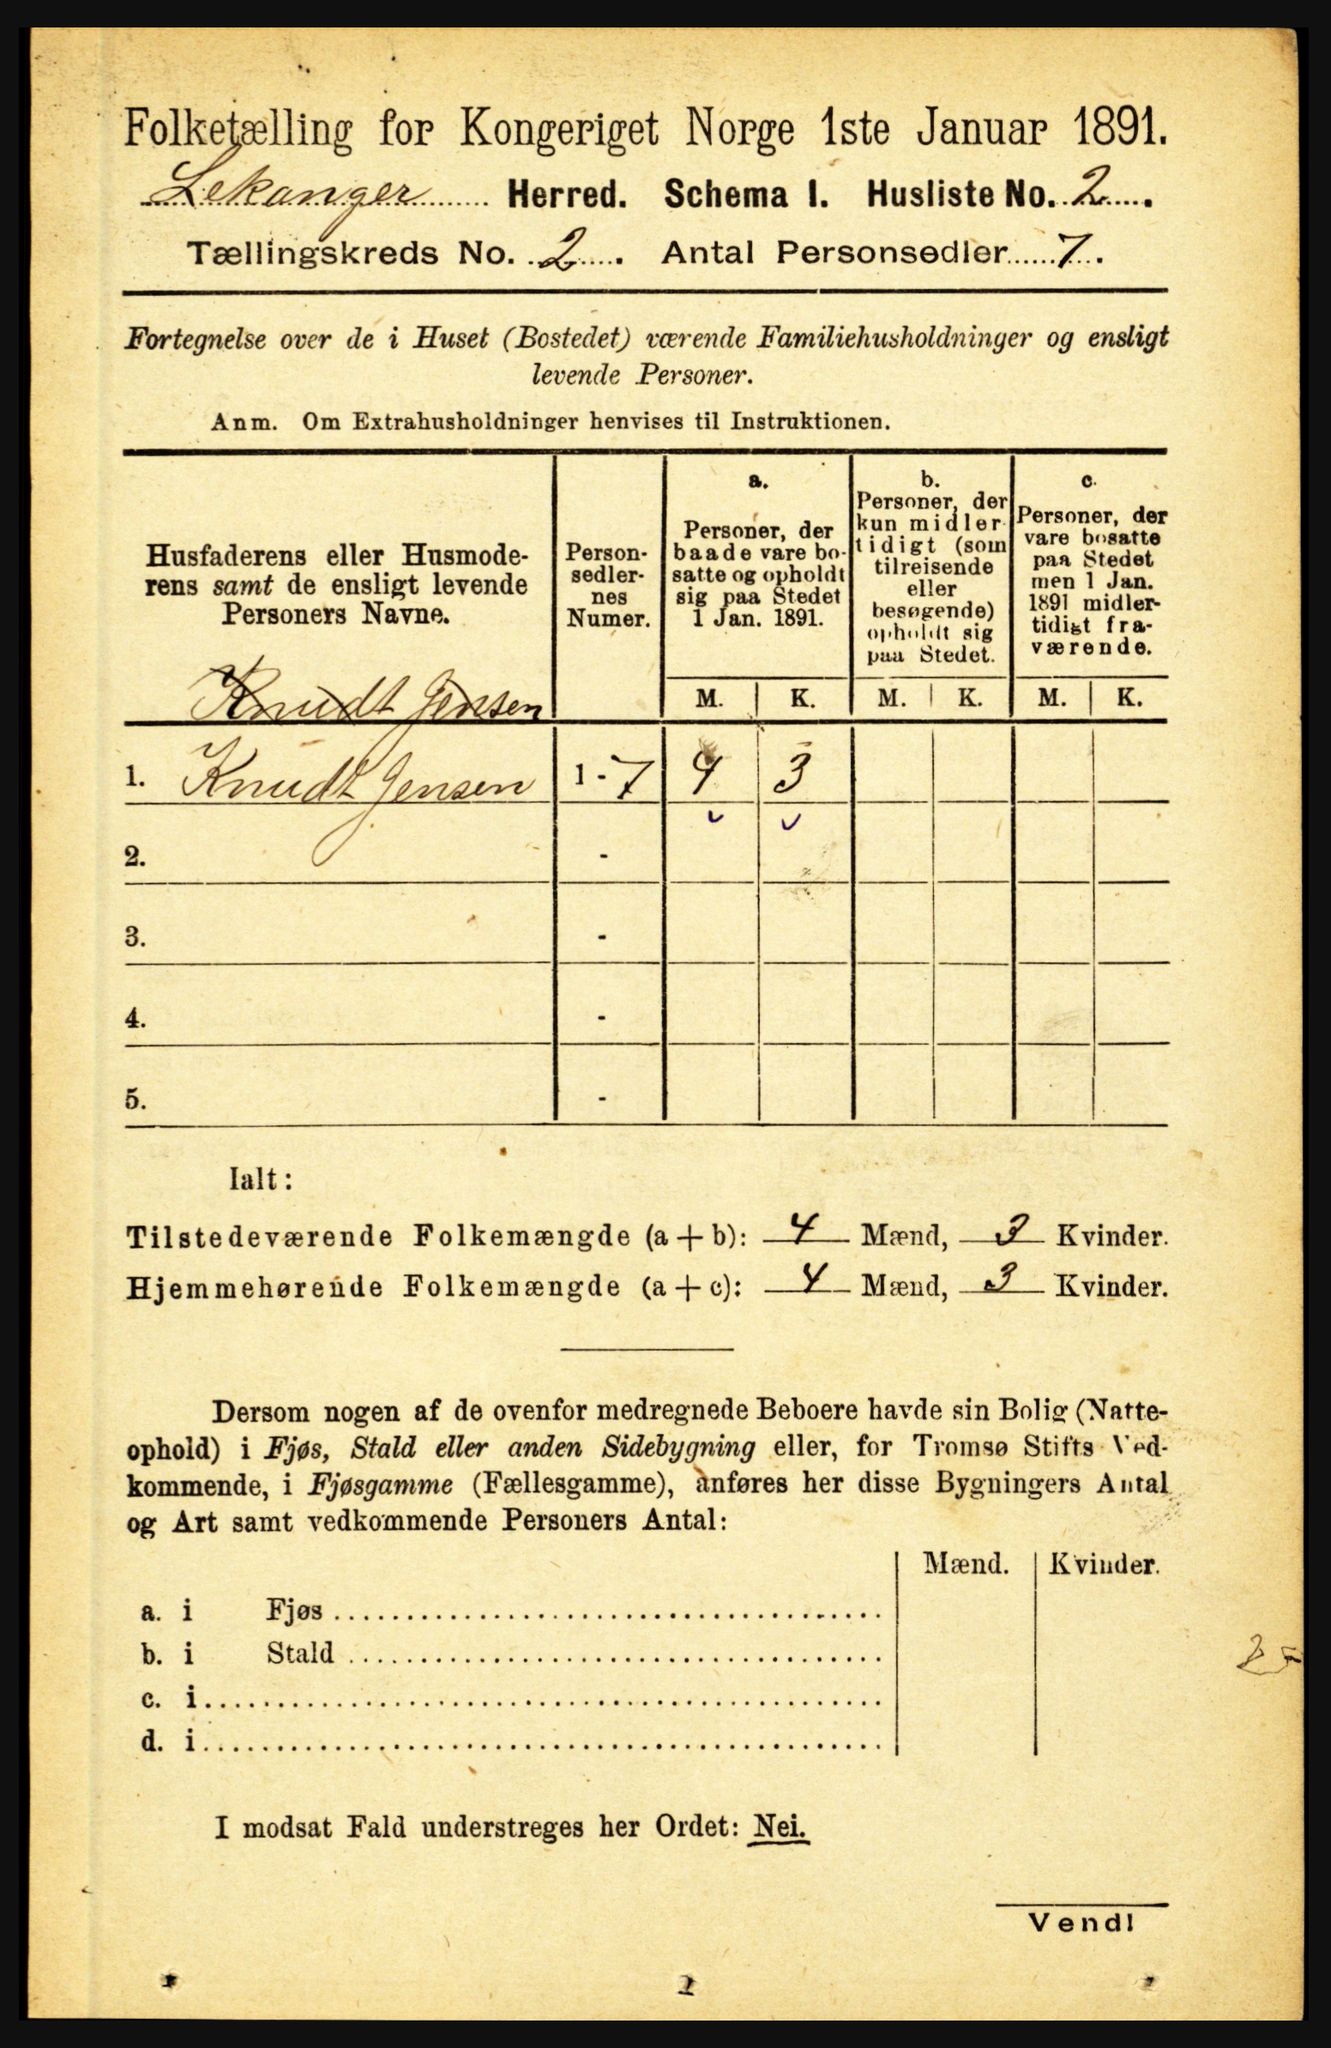 Folketælling for Kongeriget Norge 1ste Januar 1891.
Lekanger Herred. Schema I. Husliste No. 2.
Tællingskreds No. 2. Antal Personsedler 7.
Fortegnelse over de i Huset (Bostedet) værende Familiehusholdninger og ensligt
levende Personer.
Anm. Om Extrahusholdninger henvises til Instruktionen.
Husfaderens eller Husmode-
rens samt de ensligt levende
Personers Navne.
Knudt Jensen
Person-
sedler-
nes
Numer.
a.
Personer, der
baade vare bo-
satte og opholdt
sig paa Stedet
1 Jan. 1891.
b.
Personer, der
kun midler-
tidigt (som
tilreisende
eller
besøgende)
opholdt sig
paa Stedet.
c.
Personer, der
vare bosatte
paa Stedet
men 1 Jan.
1891 midler-
tidigt fra-
værende.
M. K. M. K. M. K.
1. Knudt Jensen 1-7 4 3
2. -
3. -
4. -
5. -
Ialt:
Tilstedeværende Folkemængde (a + b): 4 Mænd, 3 Kvinder.
Hjemmehørende Folkemængde (a + c): 4 Mænd, 3 Kvinder.
Dersom nogen af de ovenfor medregnede Beboere havde sin Bolig (Natte-
ophold) i Fjøs, Stald eller anden Sidebygning eller, for Tromsø Stifts Ved-
kommende, i Fjøsgamme (Fællesgamme), anføres her disse Bygningers Antal
og Art samt vedkommende Personers Antal:
Mænd. Kvinder.
a. i Fjøs
b. i Stald
c. i
d. i
I modsat Fald understreges her Ordet: Nei.
Vend!